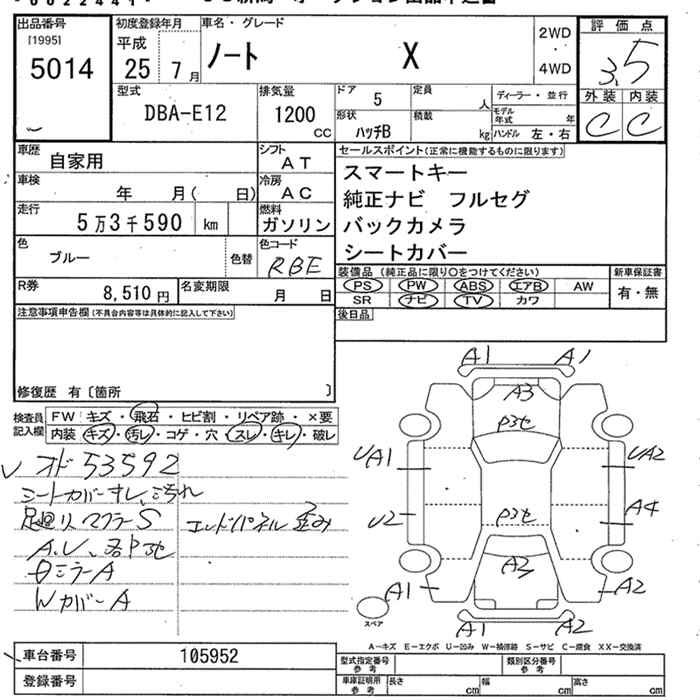 出品番号 初度登録年月 車名・グレード 評価点
[1995] 平成 ノート X 2WD
5014 25年 7月 4WD 3.5
型式 排気量 ドア 5 定員 人 ディーラー・並行 外装 内装
DBA-E12 1200 cc 形状 ハッチB 積載 kg モデル年式 年 C C
ハンドル 左・右
車歴 自家用 シフト AT セールスポイント(正常に機能するものに限ります)
車検 年 月( 日) 冷房 AC スマートキー
走行 5万3千590 km 燃料 ガソリン 純正ナビ フルセグ
バックカメラ
色 ブルー 色替 色コード RBE シートカバー
R券 8,510円 名変期限 月 日 装備品(純正品に限り○をつけてください) 新車保証書
PS PW ABS エアB AW 有・無
SR ナビ TV カワ
注意事項申告欄(不具合内容等は具体的に記入して下さい) 後日品
修復歴 有〔箇所 〕
検査員記入欄 FW キズ・飛石・ヒビ割・リペア跡・×要
内装 キズ・汚レ・コゲ・穴・スレ・キレ・破レ
オド53592
シートカバースレ、汚れ
足廻り マフラーS エンドパネル歪み
A.U、
ミラーA
WカバーA
A1 A1
A3
UA1 UA2
U2 A4
A2
A1 A2
A1 A2
スペア
A-キズ E-エクボ U-凹み W-補修跡 S-サビ C-腐食 XX-交換済
車台番号 105952 型式指定番号 参考 類別区分番号 参考
登録番号 車庫証明用 参考 長さ cm 幅 cm 高さ cm